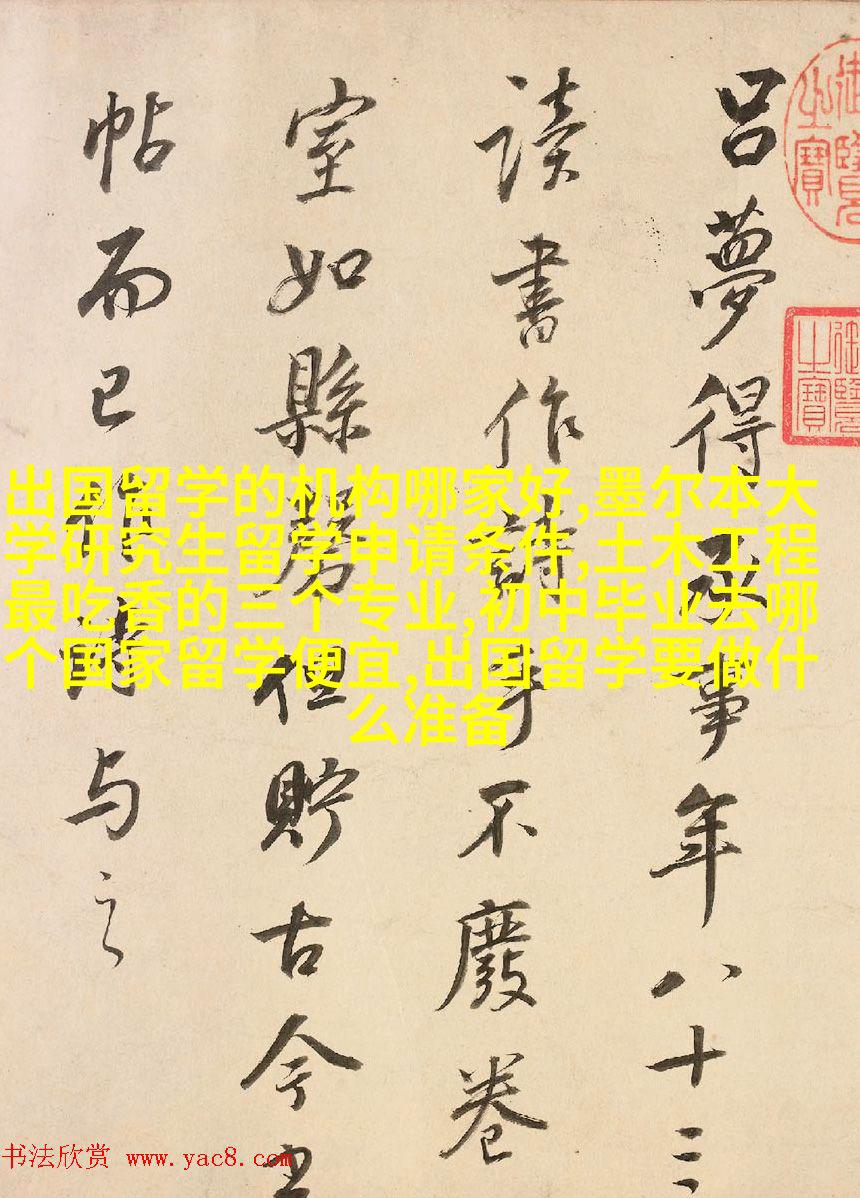 御覽之寶
御覽之寶
吕夢得承事年八十三
讀書作詩手不廢卷
室如縣罄但貯古今
帖而已作詩与之
出国留学的机构哪家好,墨尔本大
学研究生留学申请条件,土木工程
最吃香的三个专业,初中毕业去哪
个国家留学便宜,出国留学要做什
么准备
书法欣赏 www.yac8.com